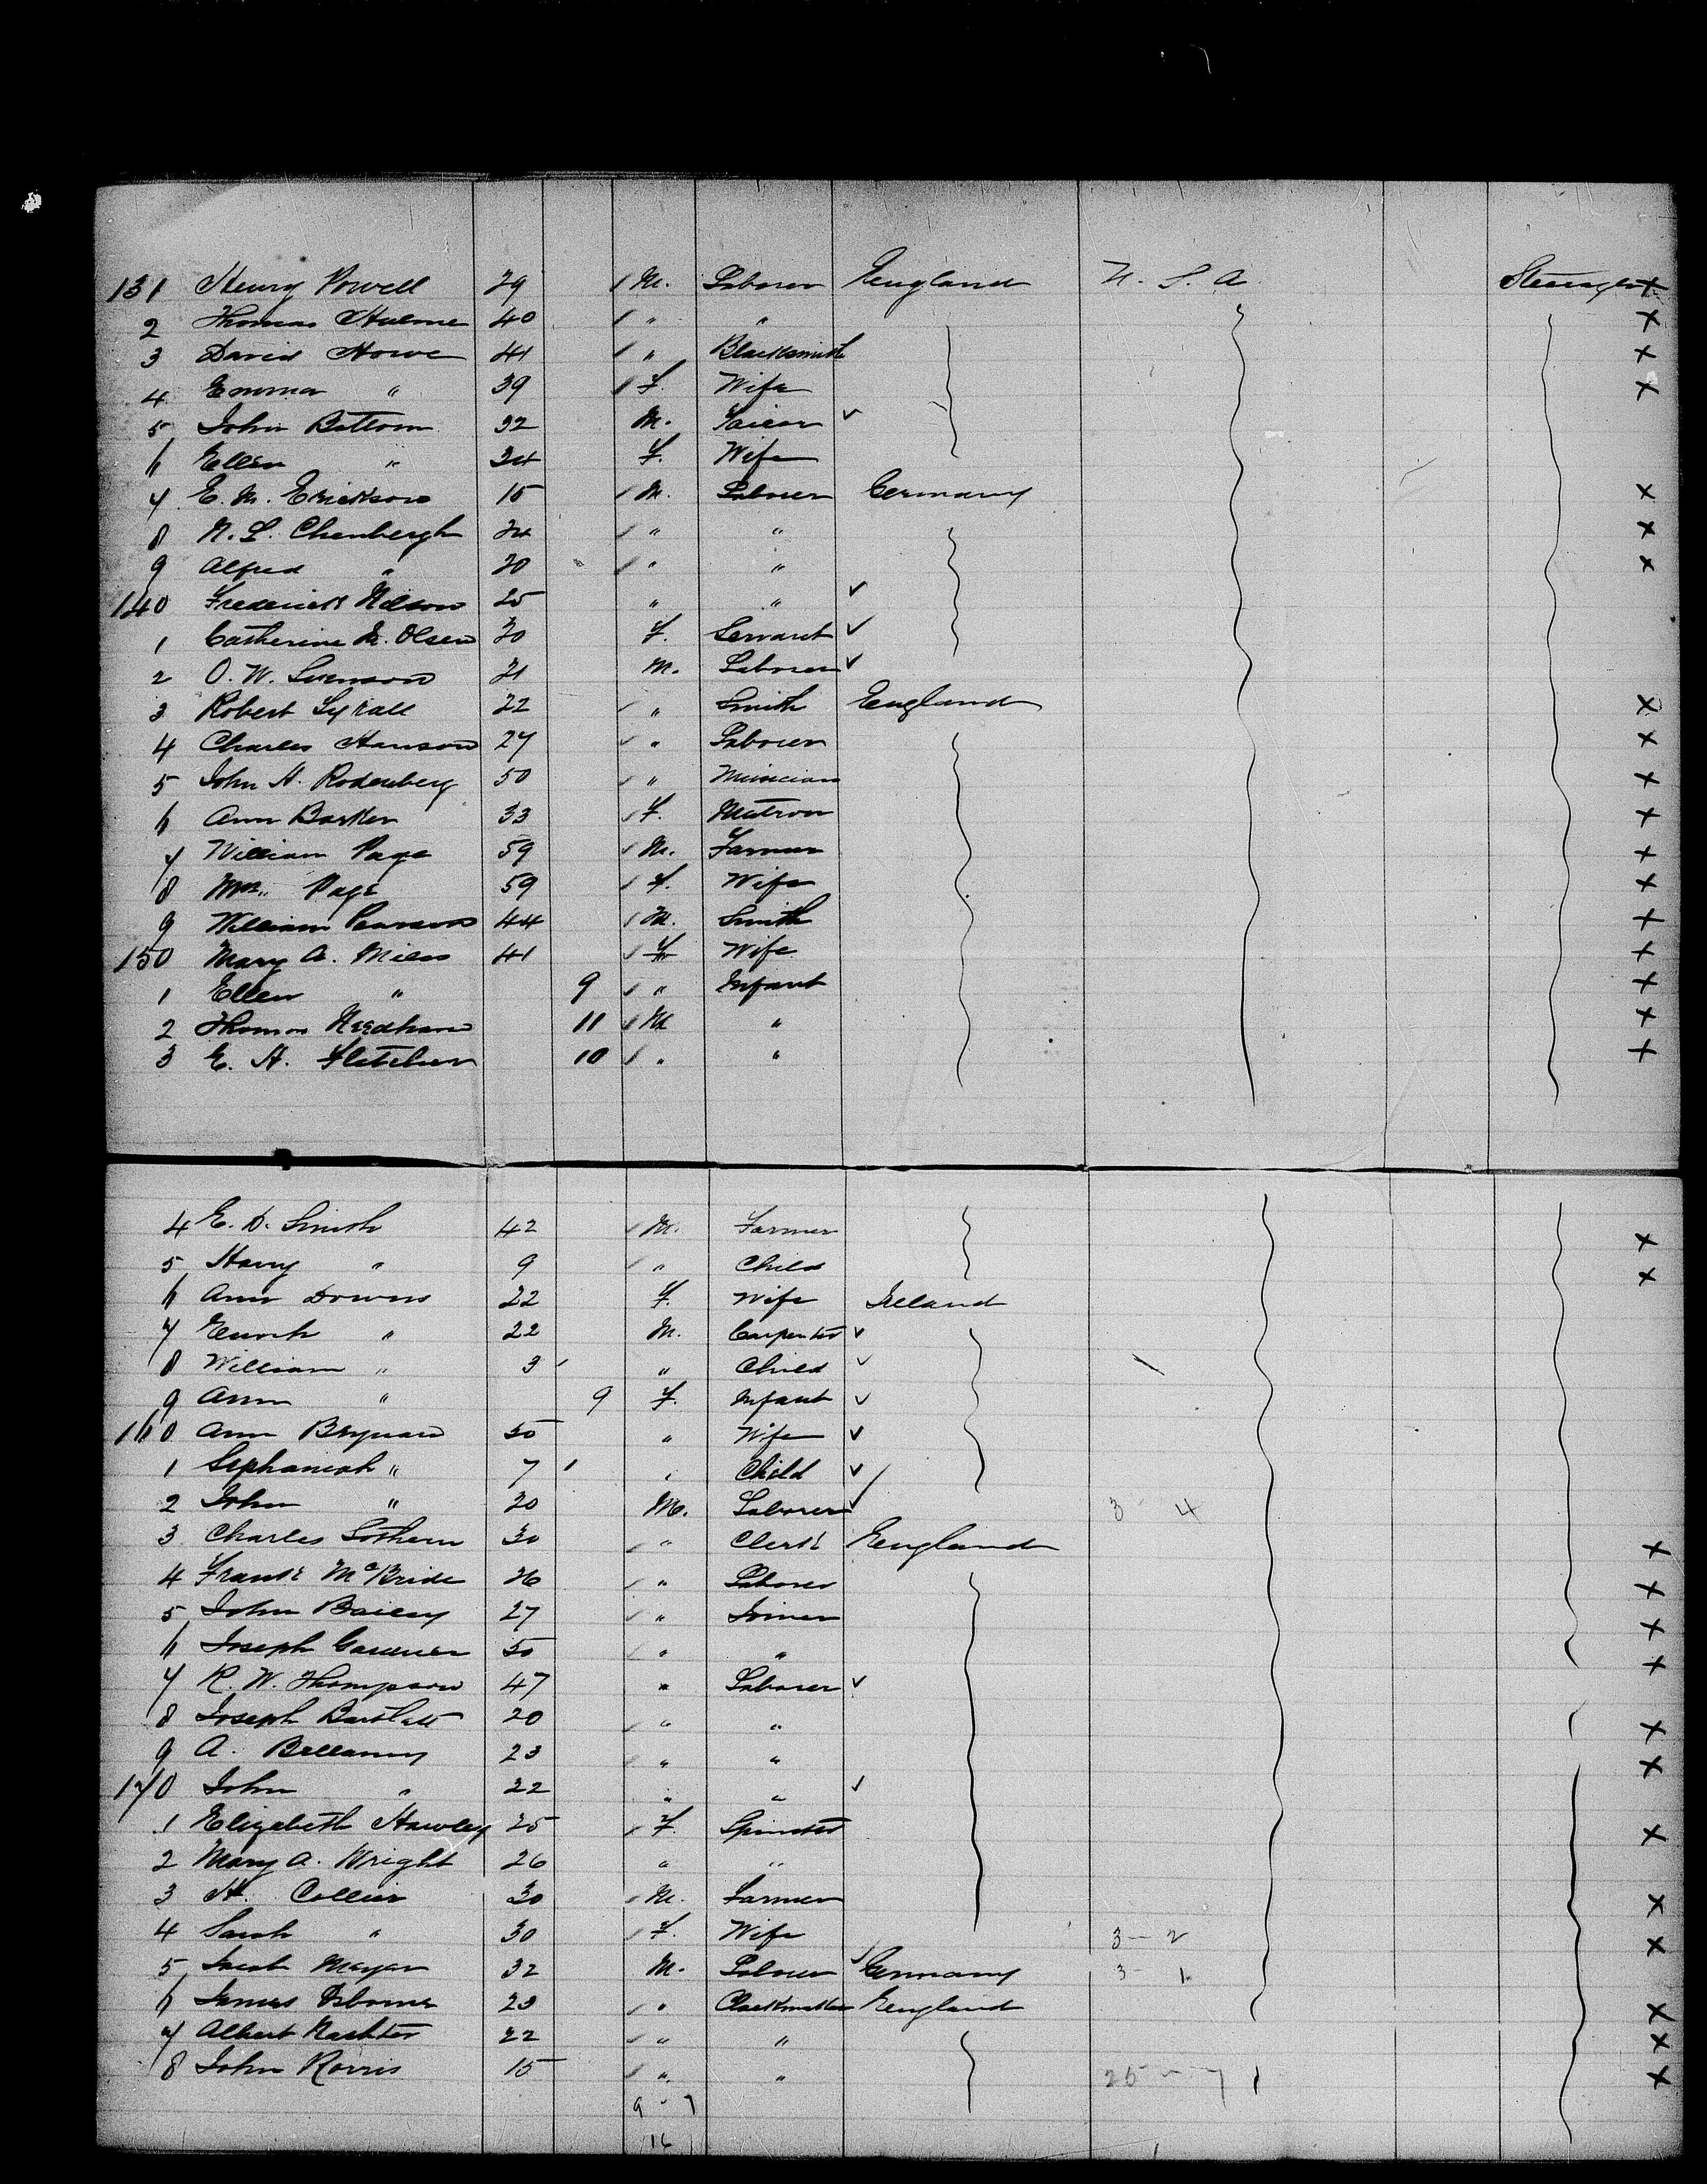 131 Henry Powell 29 M. Laborer England U. S. A. Steerage X
2 Thomas Hulme 40 " " X
3 David Howe 41 " Blacksmith X
4 Emma " 39 F. Wife X
5 John Bottom 32 M. ✓
6 Ellen " 34 F. Wife
7 E. M. Erickson 15 M. Laborer Germany X
8 N. L. Chenbergh 24 " " X
9 Alfred " 20 " " X
140 Frederick Nilson 25 " " ✓
1 Catherine M. Olsen 20 F. Servant ✓
2 O. W. Svenson 21 M. Laborer ✓
3 Robert 22 " Smith England X
4 Charles Hanson 27 " Laborer X
5 John H. Rodenberg 50 " Musician X
6 Ann Barker 33 F. Matron X
7 William Page 59 M. Farmer X
8 Mrs. Page 59 F. Wife X
9 William Pearson 44 M. Smith X
150 Mary A. Miles 41 F Wife X
1 Ellen " 9 " Infant X
2 Thomas Needham 11 M " X
3 E. H. Fletcher 10 " " X
4 E. D. Smith 42 M. Farmer X
5 Harry " 9 " Child X
6 Ann Downs 22 F. Wife Ireland
7 Enoch " 22 M. Carpenter ✓
8 William " 3 " Child ✓
9 Ann " 9 F. Infant ✓
160 Ann 50 " Wife ✓
1 Sephaniah " 7 " Child ✓
2 John " 20 M. Laborer ✓ 3 - 4
3 Charles Sothern 30 " Clerk England X
4 Frank McBride 26 " Laborer X
5 John Bailey 27 " Joiner X
6 Joseph 50 " " X
7 R. W. Thompson 47 " Laborer ✓
8 Joseph Bartlatt 20 " " X
9 A. Bellamy 23 " " X
170 John " 22 " " ✓
1 Elizabeth Hawley 25 F. Spinster X
2 Mary A. Wright 26 " "
3 H. Collier 30 M. Farmer X
4 Sarah " 30 F. Wife 3 - 2 X
5 Jacob Mayar 32 M. Laborer ✓ Germany 3 - 1
6 James Osborne 23 " Clockmaker England X
7 Albert 22 " " X
8 John Rorris 15 " " 25 - 7 X
9 - 7
16